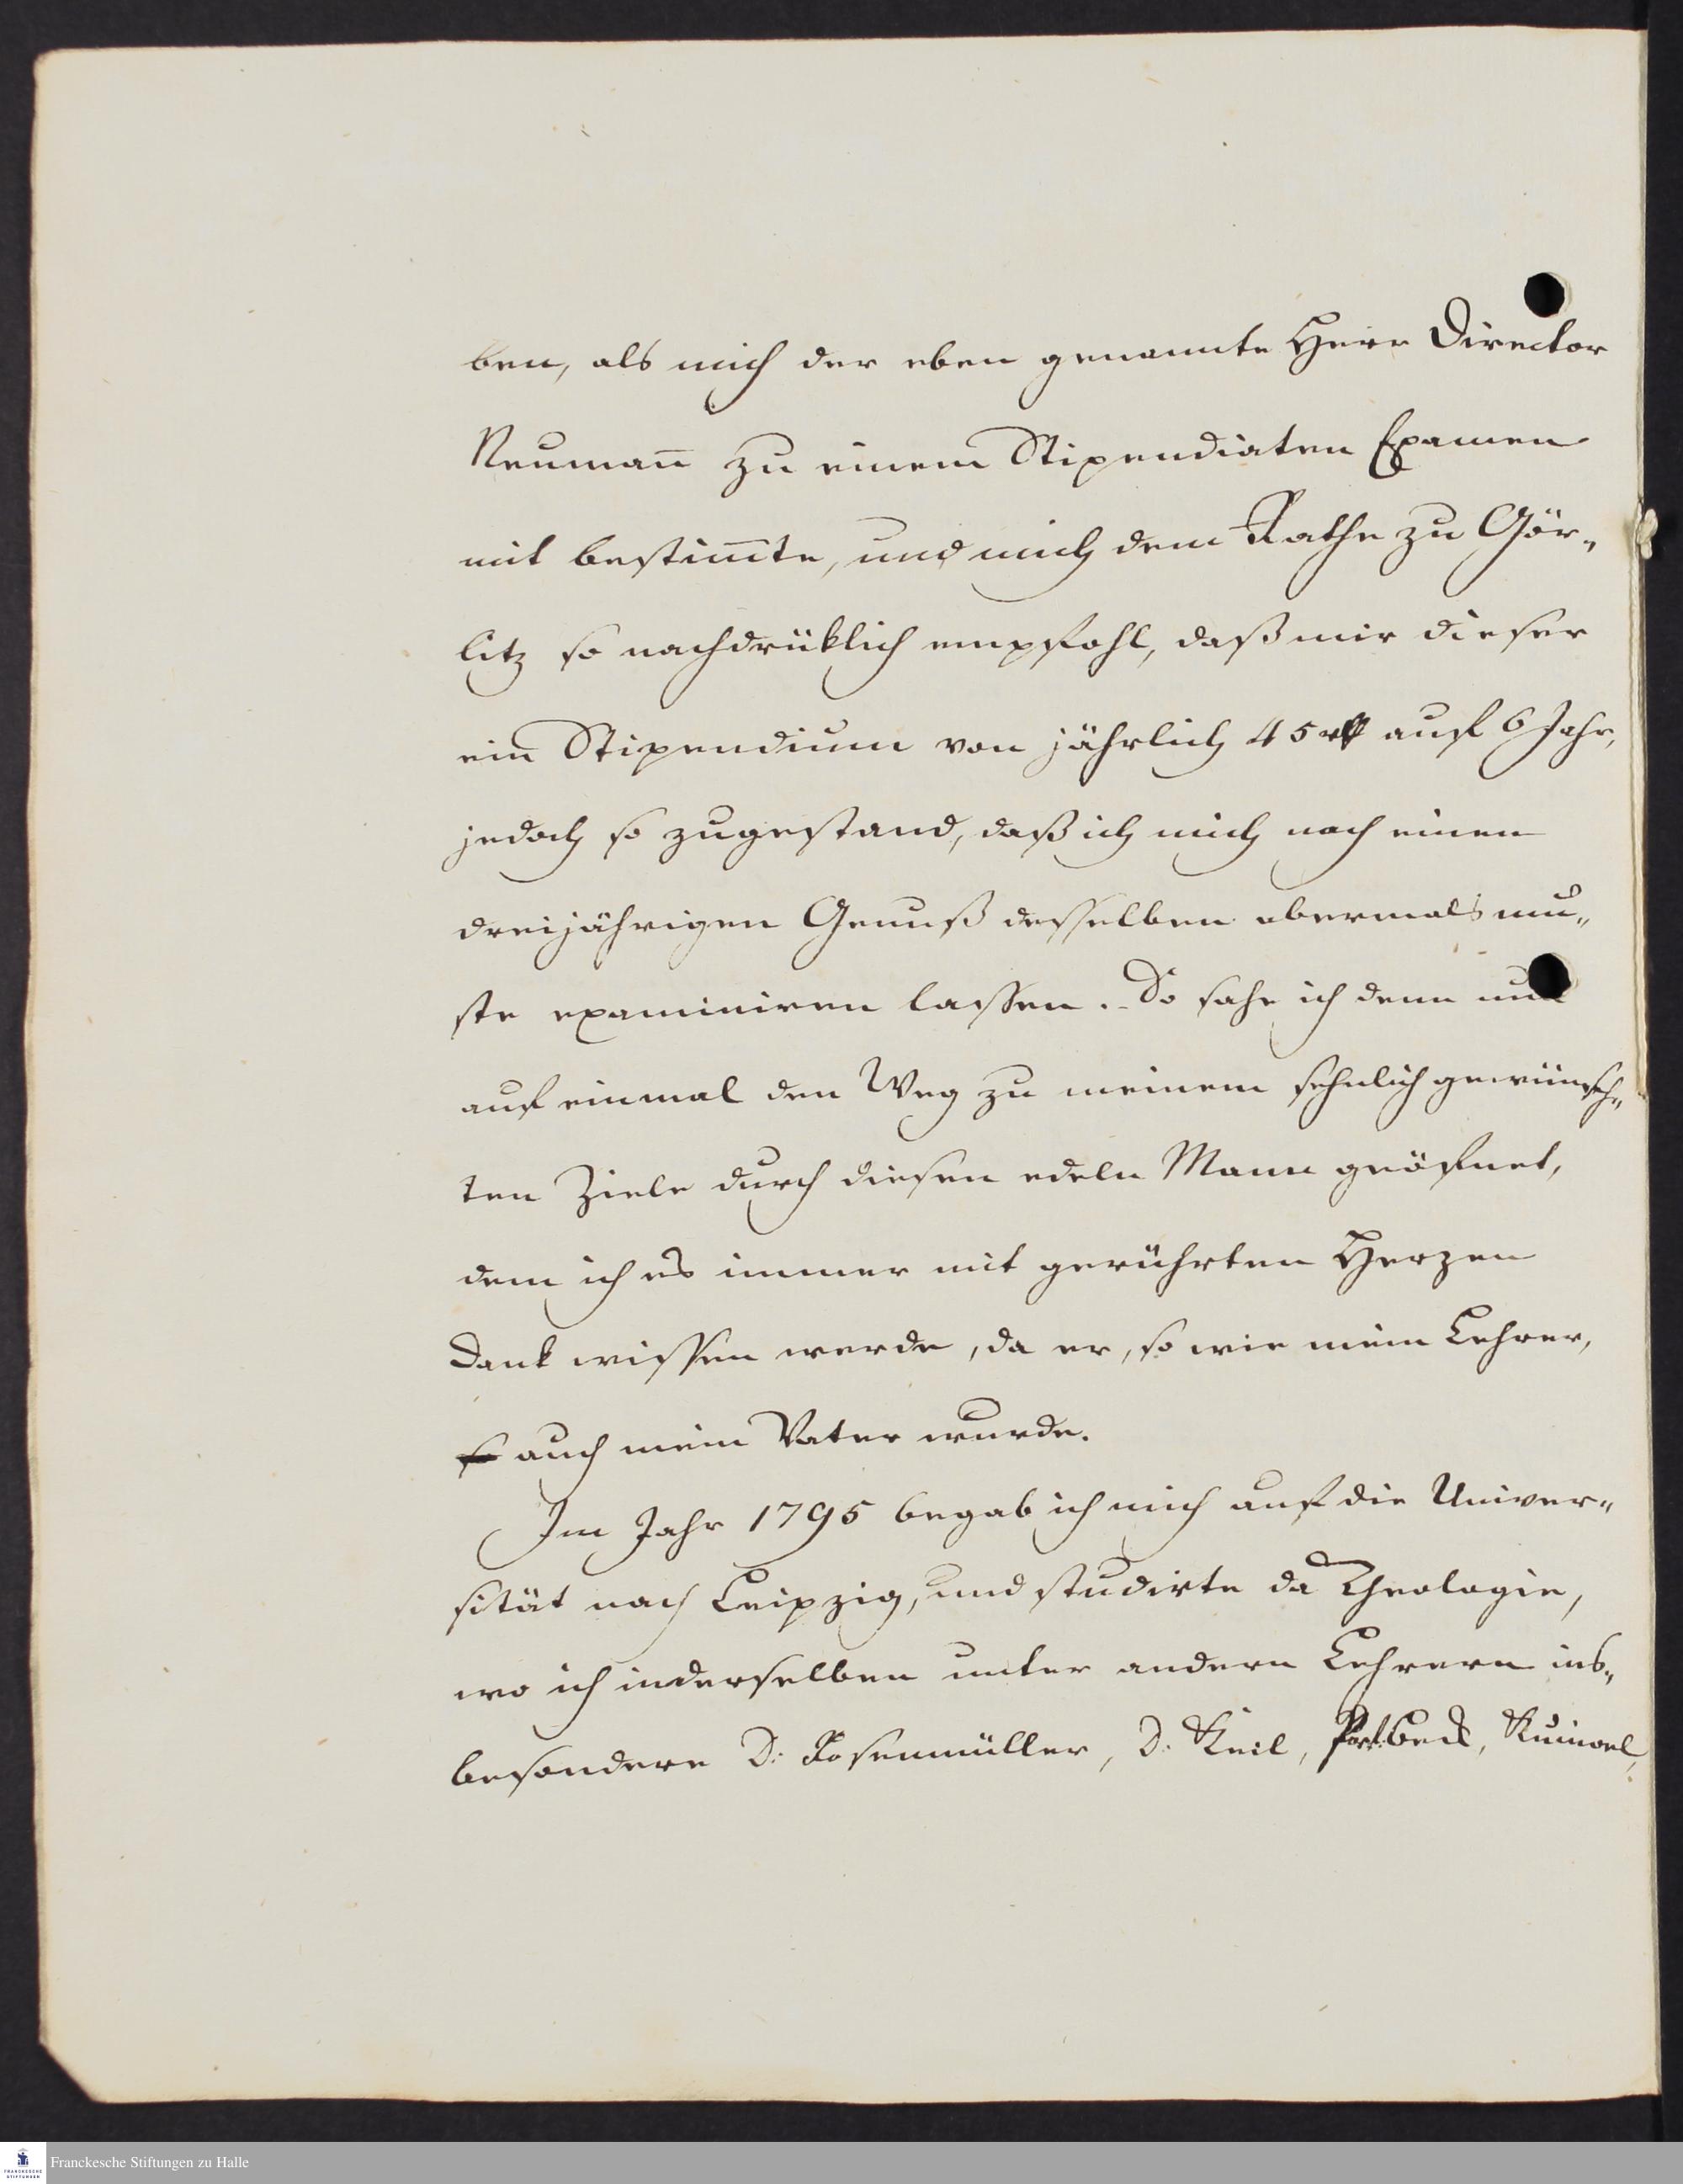 ben, als mich der eben genannte Herr Director
Neumañ zu einem Stipendiaten Examen
mit bestim̄te, und mich dem Rathe zu Gör„
litz so nachdrüklich empfohl, daß mir dieser
ein Stipendium von jährlich 45 rℓ auf 6 Jahr,
jedoch so zugestand, daß ich mich nach einen
dreijährigen Genuß desselben abermals mu„
ste examiniren lassen. – So sahe ich denn nun
auf einmal den Weg zu meinem sehnlich gewünsch„
ten Ziele durch diesen edeln Mann geöfnet,
dem ich es immer mit gerührten Herzen
Dank wissen werde, da er, so wie mein Lehrer,
so auch mein Vater wurde.
Im Jahr 1795 begab ich mich auf die Univer„
sität nach Leipzig, und studirte da Theologie,
wo ich in derselben unter andern Lehrern ins„
besondere D. Rosenmüller, D. Keil, Beck, Kuinoel,
Franckesche Stiftungen zu Halle
FRANCKESCHE
STIFTUNGEN